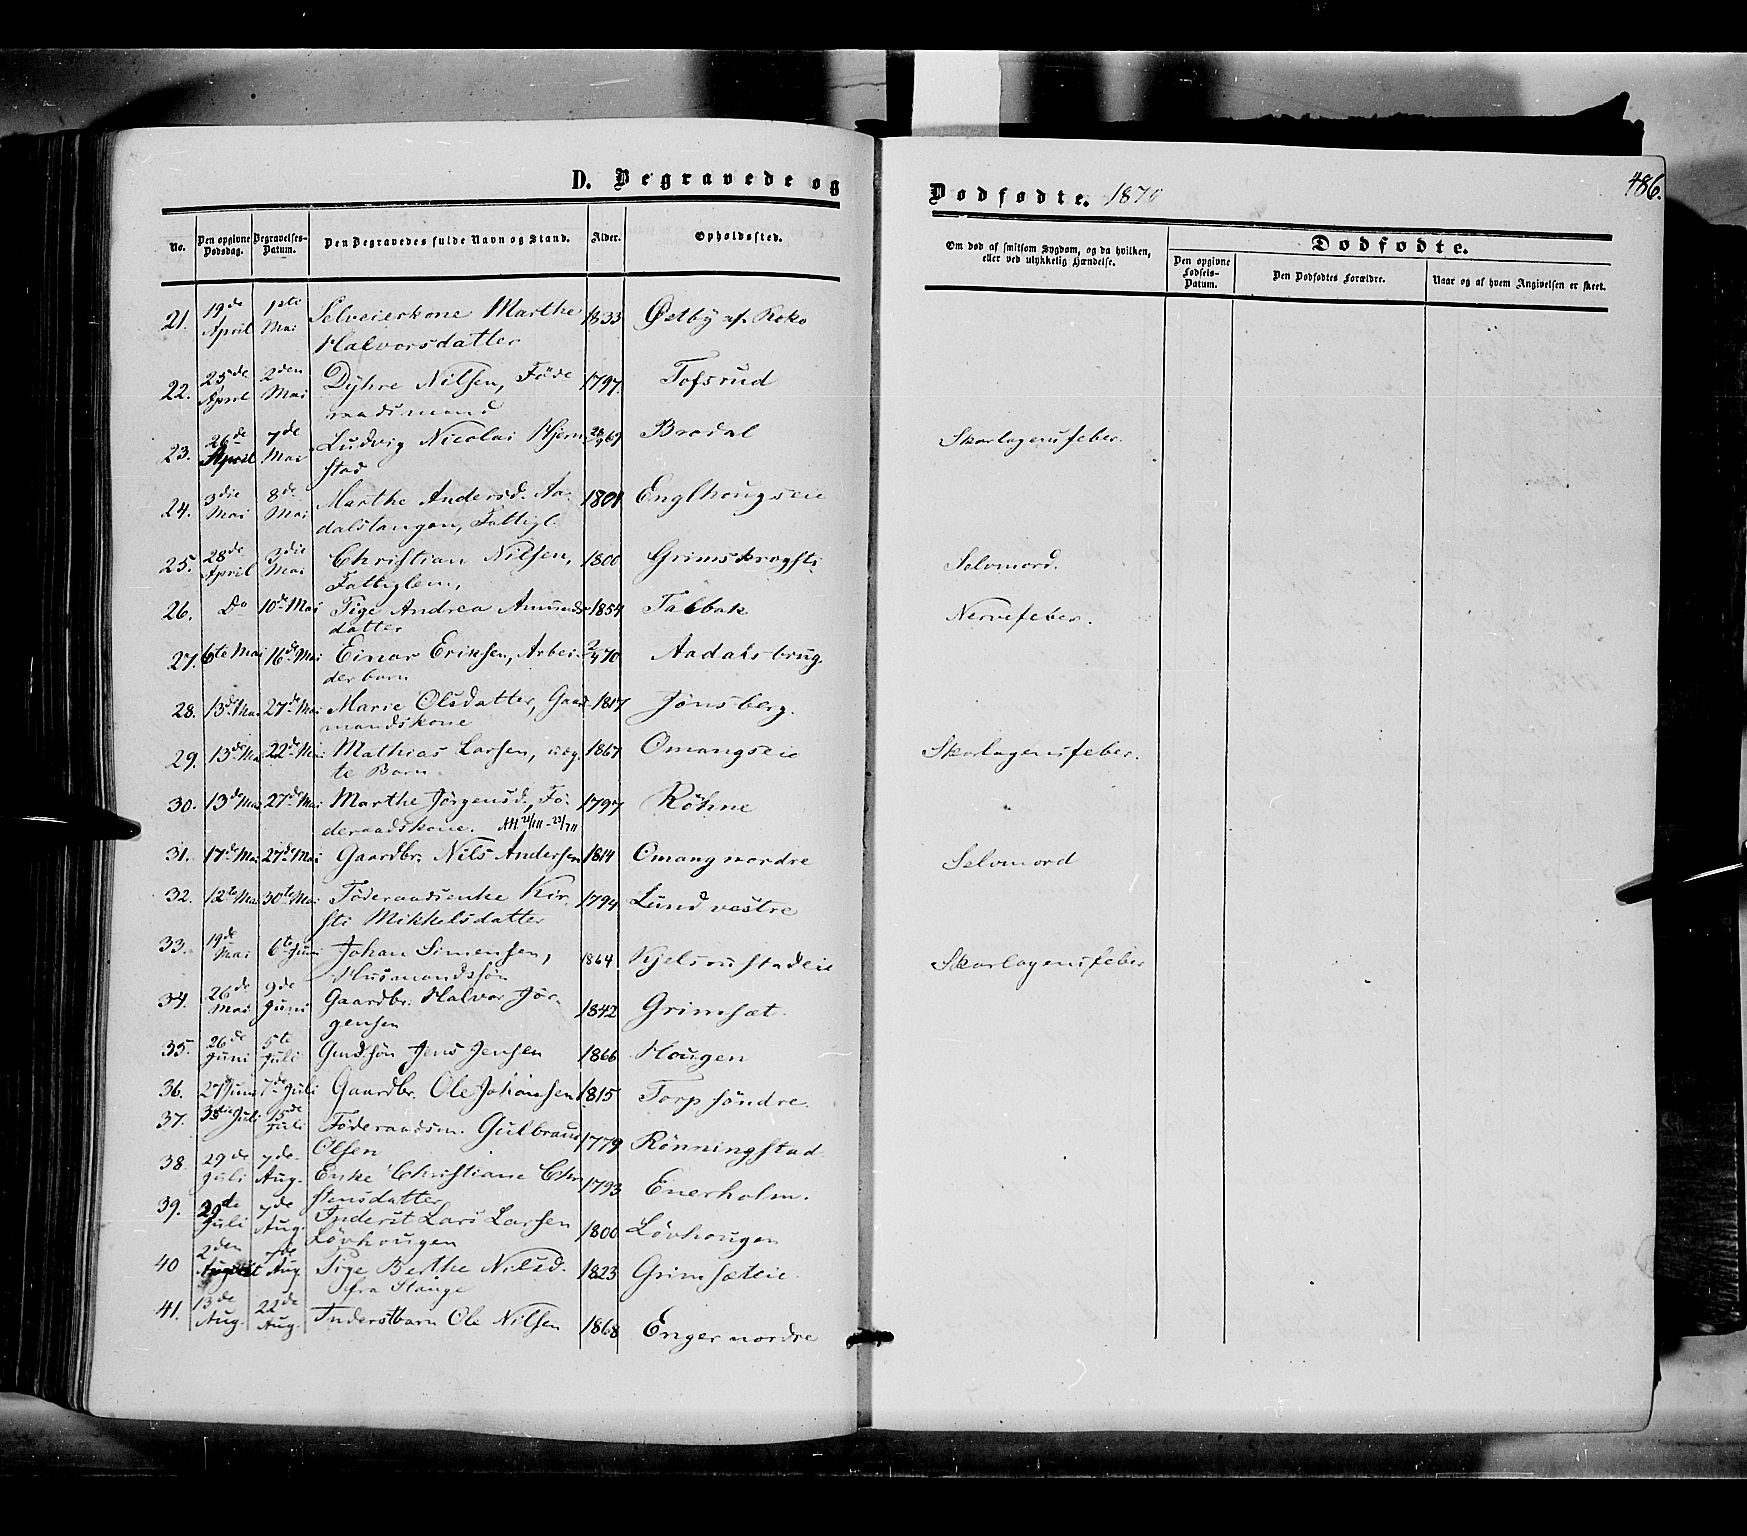 D. Begravede og
Dødfødte. 1870
486.
No. Den opgivne Dødsdag. Begravelses-Datum. Den Begravedes fulde Navn og Stand. Alder. Opholdssted.
Om død af smitsom Sygdom, og da hvilken, eller ved ulykkelig Hændelse.
Dødfødte.
Den opgivne Fødsels-Datum. Den Dødfødtes Forældre. Naar og af hvem Angivelsen er skeet.
21. 19de April 1ste Mai Selveierkone Marthe 1833 Østby af Roko
Halvorsdatter
22. 25de April 2den Mai Dyhre Nilsen, Føde 1797. Tofsrud
raadsmand
23. 26de April 7de Mai Ludvig Nicolai Hjem Brodal Skarlagensfeber.
stad
24. 3die Mai 8de Mai Marthe Andersd. Aa- 1801 Englhougseie
dalstangen, Fattigl.
25. 28de April 3die Mai Christian Nilsen, 1800 Selvmord.
Fattiglem,
26. Do 10de Mai Pige Andrea Amunds- 1854 Talbak Nervefeber.
datter
27. 6te Mai 16de Mai Einar Eriksen, Arbei- 2/4 70 Aadalsbrug.
derbarn
28. 13de Mai 27de Mai Marie Olsdatter, Gaard- 1817 Jønsberg.
mandskone
29. 13de Mai 22de Mai Mathias Larsen, uæg- 1867 Omangseie Skarlagensfeber.
te Barn.
30. 13de Mai 27de Mai Marthe Jørgensd., Fø- 1797 Röhne
deraadskone.
31. 17de Mai 27de Mai Gaardbr. Nils Andersen 1814 Omang nordre Selvmord
32. 12te Mai 30te Mai Föderaadsenke Kir- 1794 Lund vestre
sti Mikkelsdatter
33. 19de Mai 6te Juni Johan Simensen, 1864 Kjelsrustadeie Skarlagensfeber
Husmandssøn
34. 26de Mai 9de Juni Gaardbr. Halvor Jør- 1842 Grimsæt.
gensen
35. 26de Juni 5te Juli Jens Jensen 1866 Hougen
36. 27 Juni 7de Juli Gaardbr. Ole Johansen 1815 Torp søndre.
37. Juli 15de Juli Föderaadsm. Gulbrand 1779 Rönningstad
Olsen
38. 29de Juli 7de Aug. Enke Christiane Chri 1793 Enerholm.
stensdatter
39. 29de Juli 7de Aug. Inderst Lars Larsen 1800 Lövhougen
Lövhougen
40 2den August Aug. Pige Berthe Nilsd. 1823 Grimsæteie.
fra Stange
41. 13de Aug. 22de Aug. Inderstbarn Ole Nilsen 1868 Enger nordre